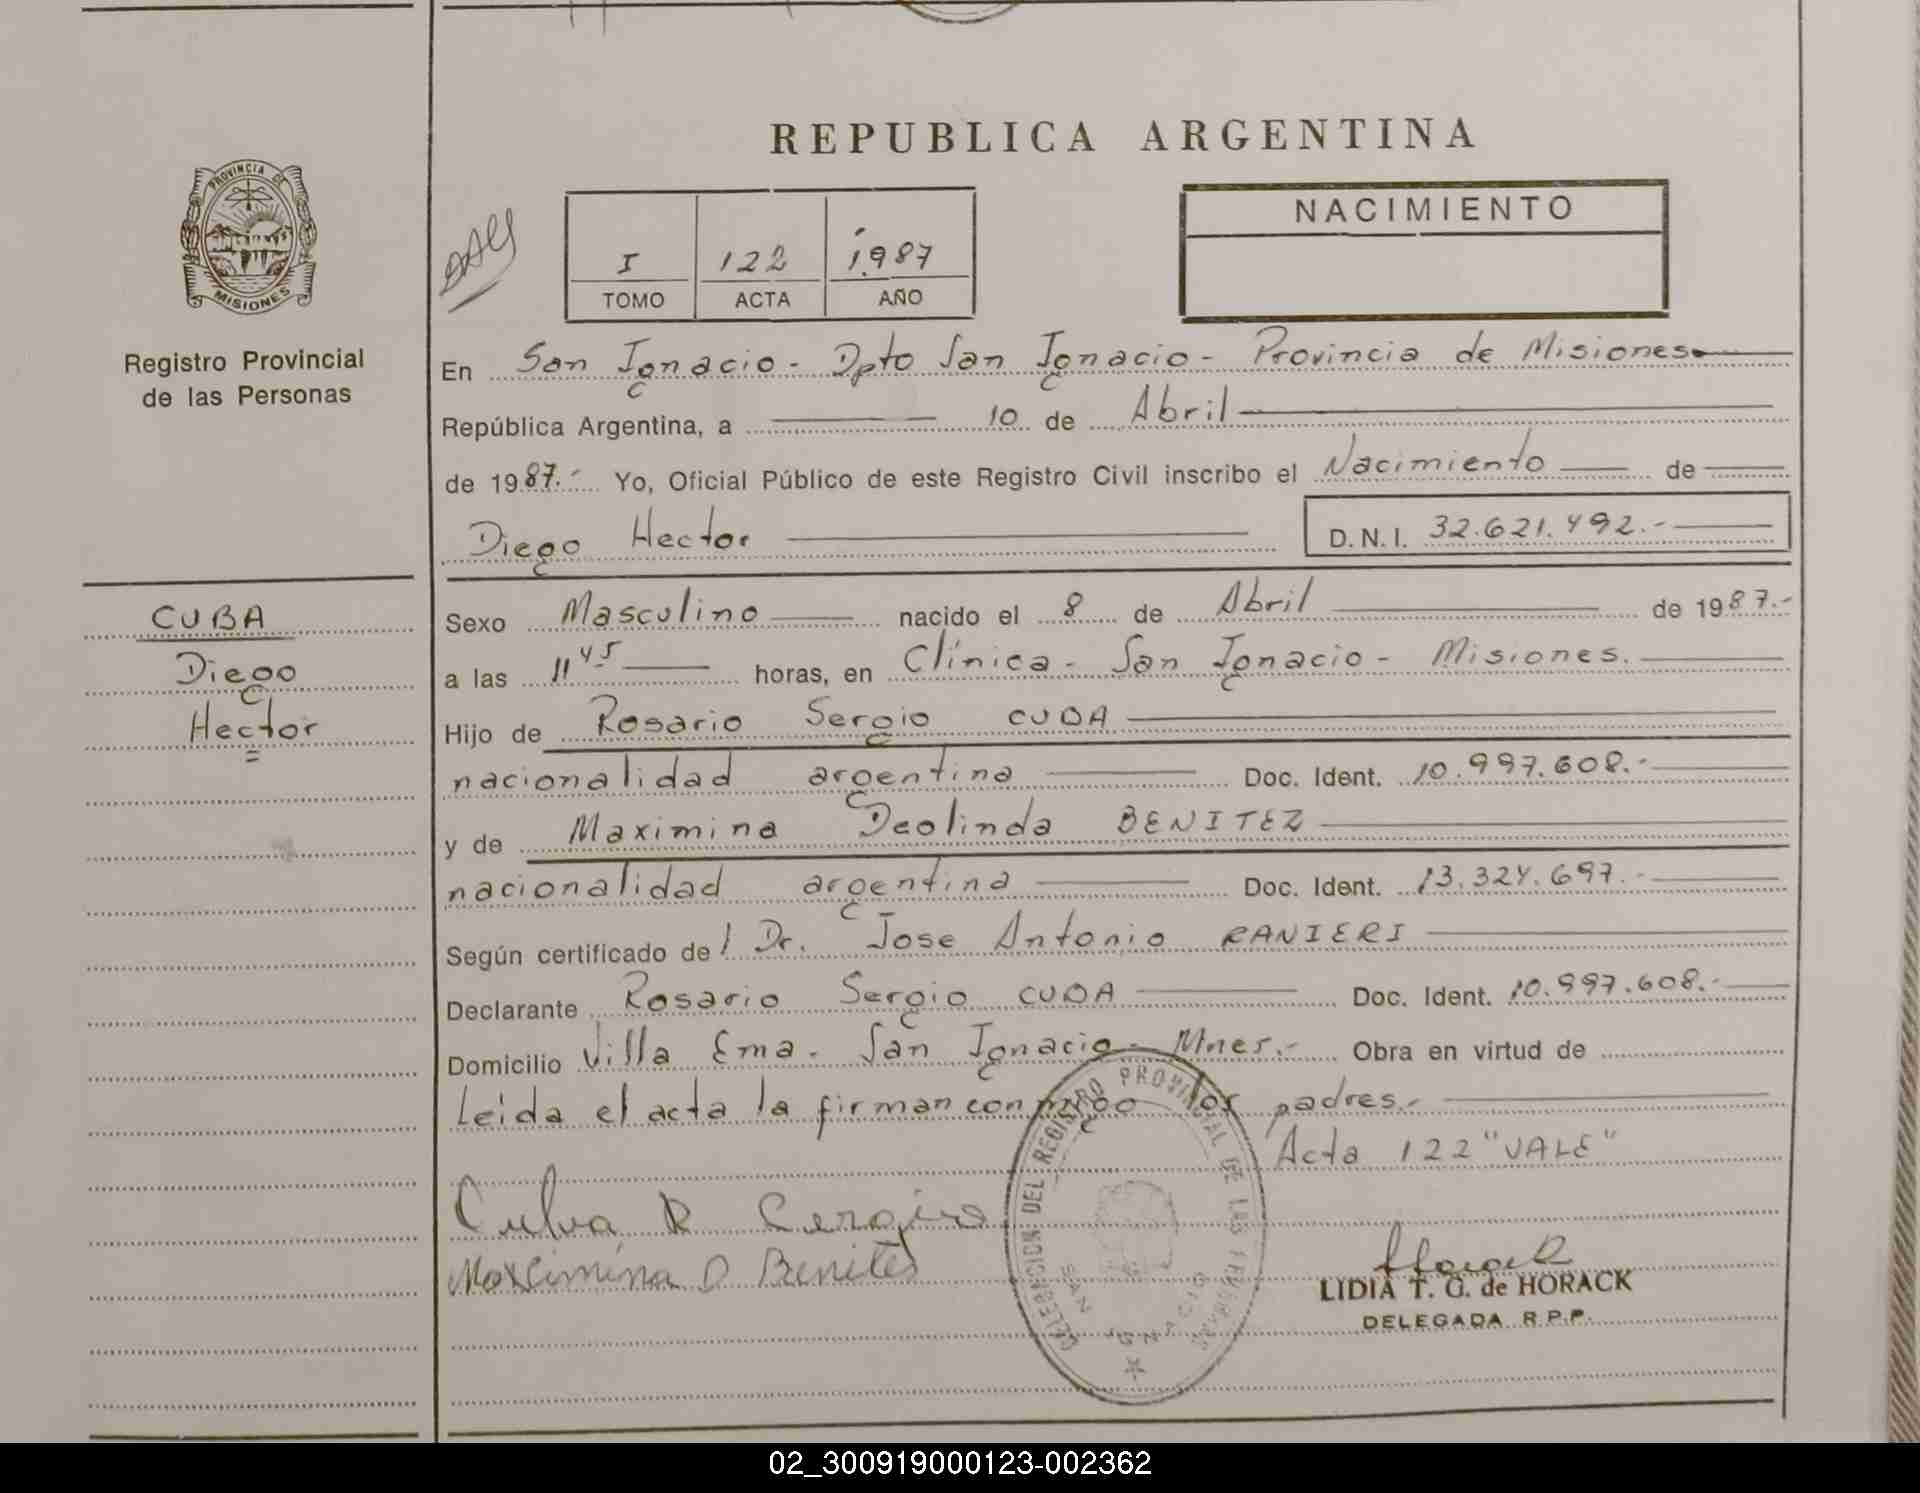 REPUBLICA ARGENTINA
PROVINCIA DE
MISIONES
Registro Provincial
de las Personas
I 122 1987
TOMO ACTA AÑO
NACIMIENTO
En San Ignacio - Dpto San Ignacio - Provincia de Misiones
República Argentina, a 10 de Abril
de 1987.- Yo, Oficial Público de este Registro Civil inscribo el Nacimiento de
Diego Hector D.N.I. 32.621.492.-
CUBA
Diego
Hector
Sexo Masculino nacido el 8 de Abril de 1987.-
a las 11 45 horas, en Clínica - San Ignacio - Misiones.
Hijo de Rosario Sergio CUBA
nacionalidad argentina Doc. Ident. 10.997.608.-
y de Maximina Deolinda BENITEZ
nacionalidad argentina Doc. Ident. 13.324.697.-
Según certificado del Dr. Jose Antonio RANIERI
Declarante Rosario Sergio CUBA Doc. Ident. 10.997.608.-
Domicilio Villa Ema - San Ignacio - Mnes.- Obra en virtud de
Leída el acta la firman conmigo los padres.-
Acta 122 "VALE"
DELEGACION DEL REGISTRO PROVINCIAL DE LAS PERSONAS
SAN IGNACIO
Culva R Sergio
Maxcimina D Benites
LIDIA T. G. de HORACK
DELEGADA R.P.P.
02_300919000123-002362